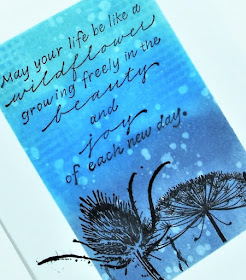 May your life be like a
wildflower
growing freely in the
beauty
and
joy
of each new day.